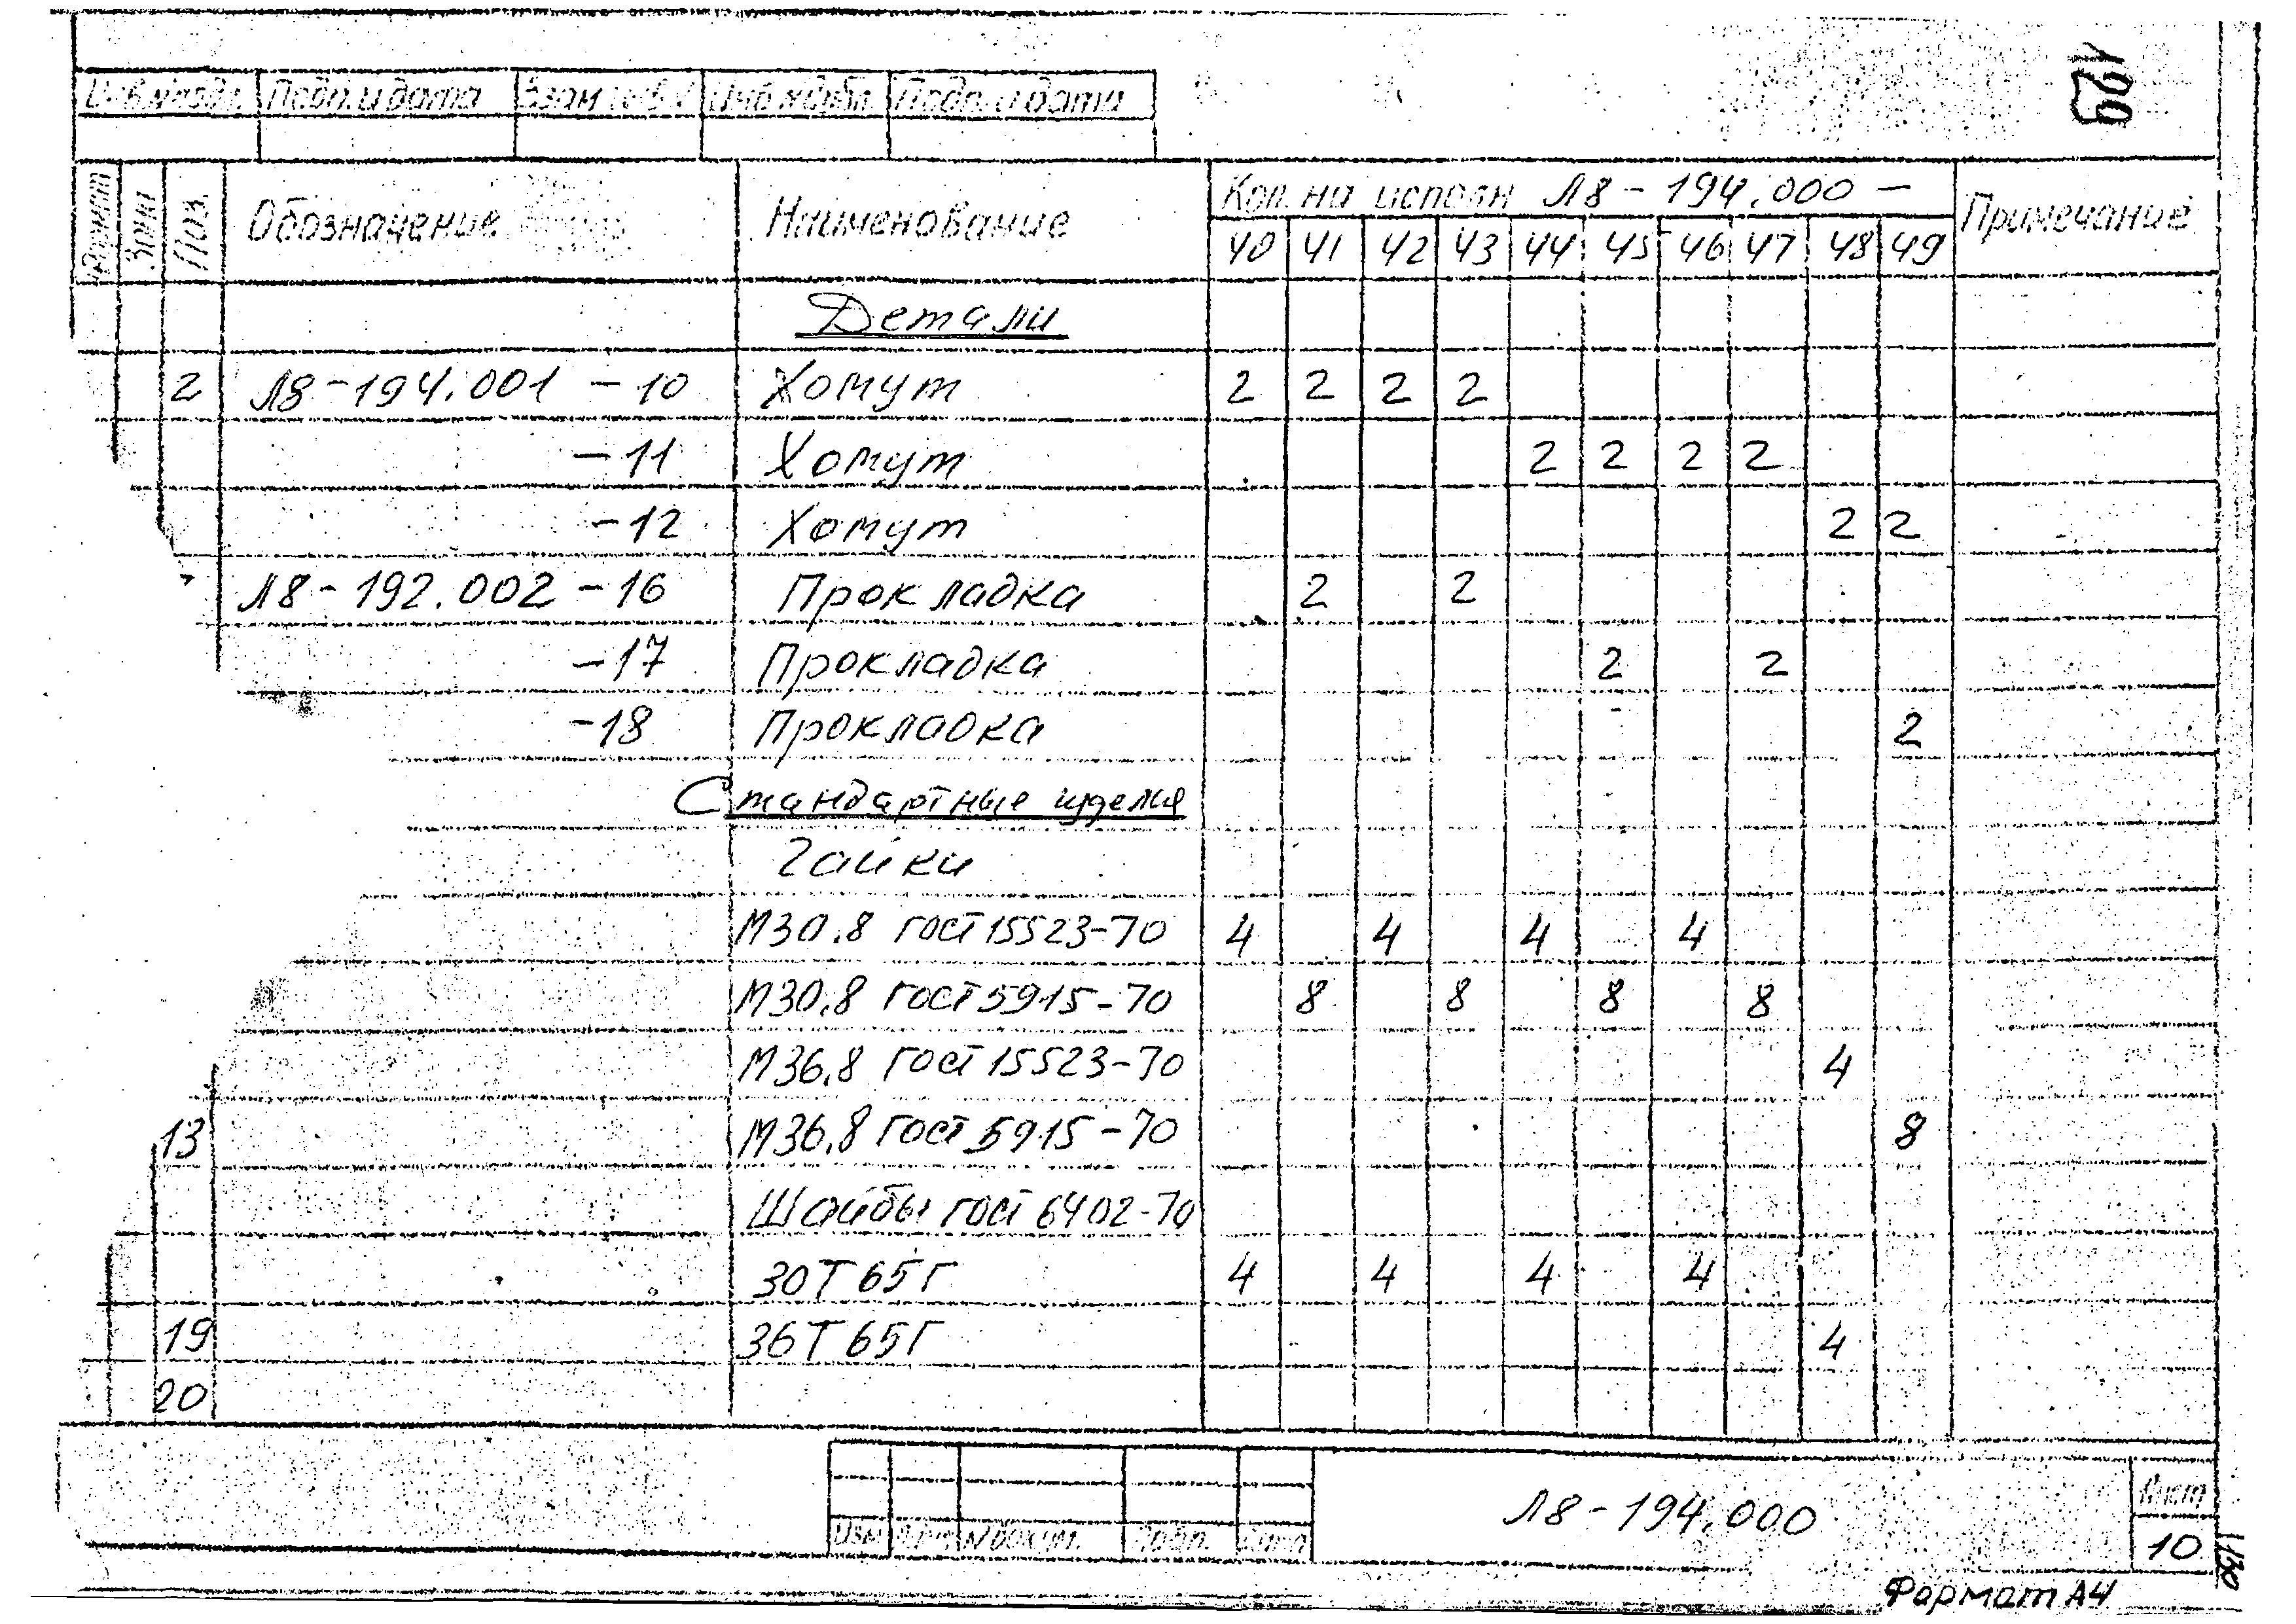 Инв № подл. Подп. и дата Взам инв № Инв № дубл. Подп. и дата
Формат Зона Поз. Обозначение Наименование Кол. на исполн Л8-194.000- Примечание
40 41 42 43 44 45 46 47 48 49
Детали
2 Л8-194.001 -10 Хомут 2 2 2 2
-11 Хомут 2 2 2 2
-12 Хомут 2 2
Л8-192.002 -16 Прокладка 2 2
-17 Прокладка 2 2
-18 Прокладка 2
Стандартные изделия
Гайки
М30.8 ГОСТ 15523-70 4 4 4 4
М30.8 ГОСТ 5915-70 8 8 8 8
М36.8 ГОСТ 15523-70 4
13 М36.8 ГОСТ 5915-70 8
Шайбы ГОСТ 6402-70
30Т 65Г 4 4 4 4
19 36Т 65Г 4
20
Изм Лист № докум. Подп. Дата
Л8-194.000
Лист
10
Формат А4